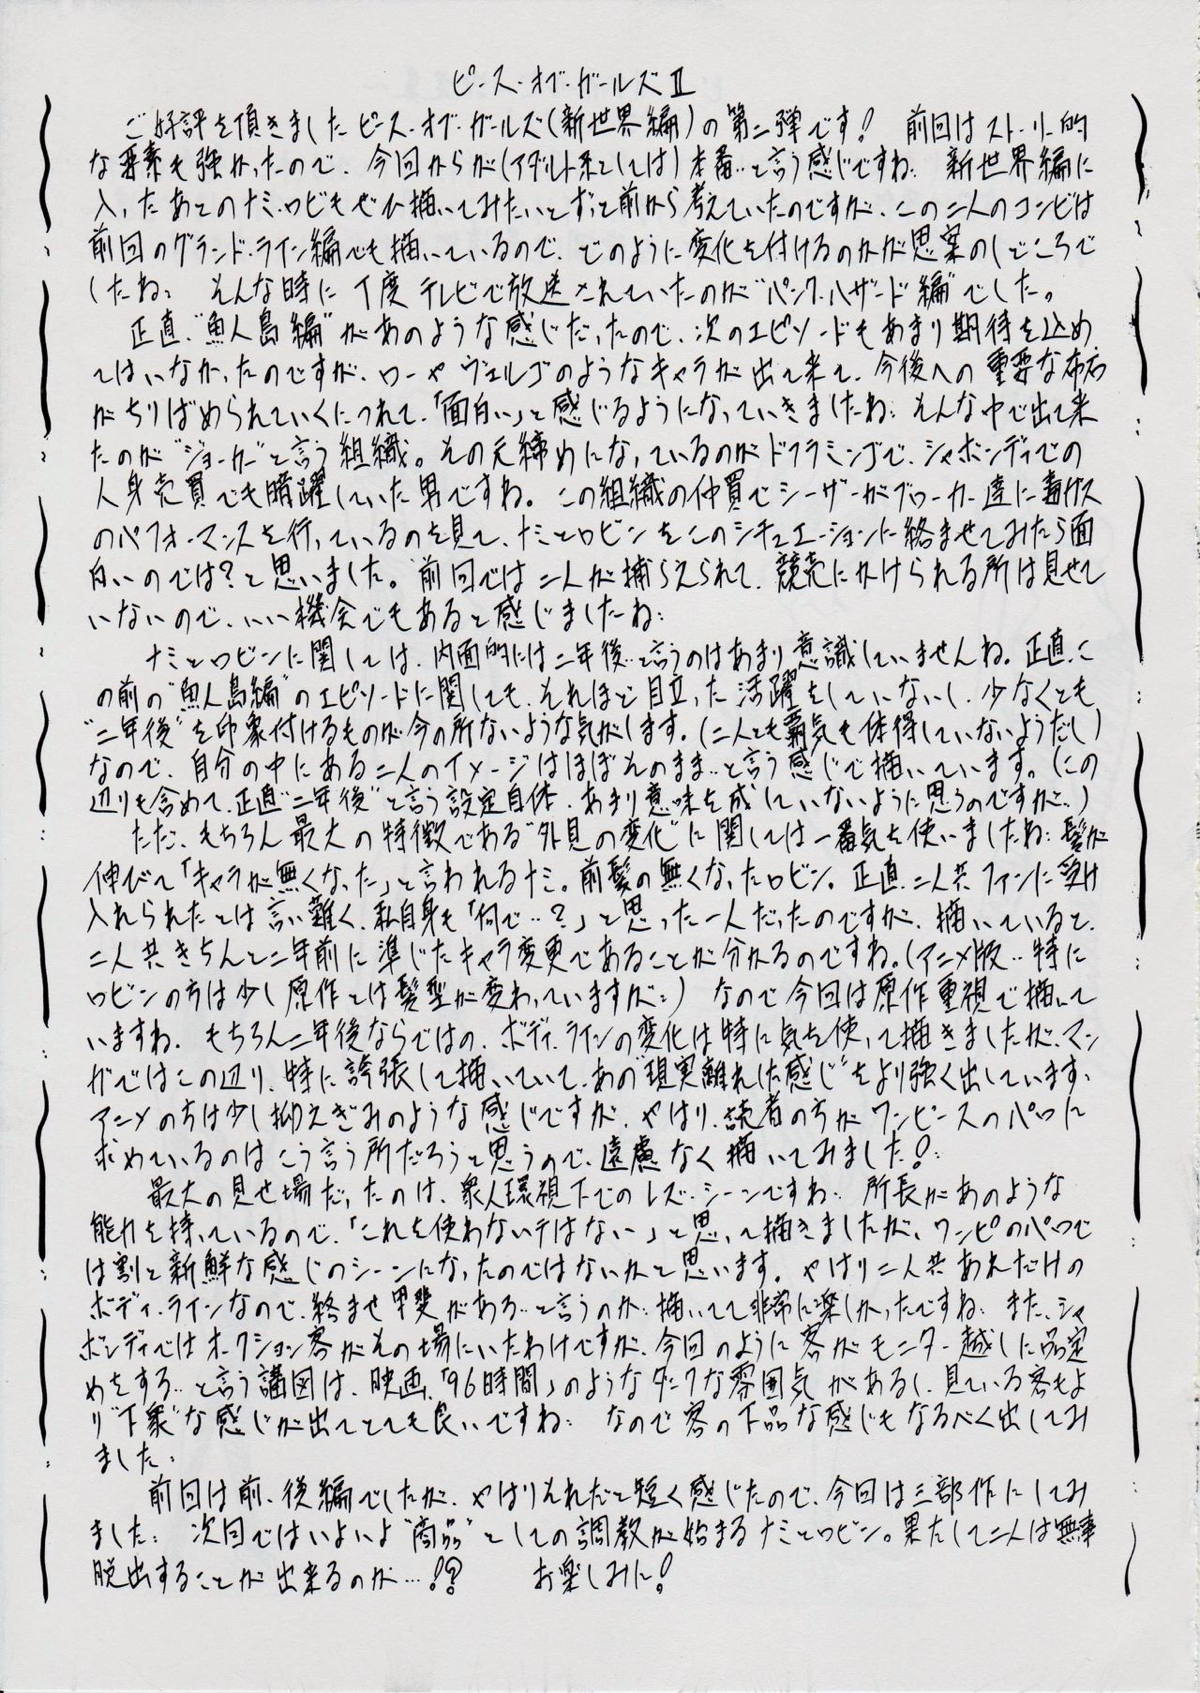 ピース・オブ・ガールズⅡ
ご好評を頂きましたピース・オブ・ガールズ(新世界編)の第二弾です! 前回はストーリー的
な要素も強かったので、今回からが(アダルト系としては)本番‥と言う感じですね‥ 新世界編に
入ったあとのナミ・ロビもぜひ描いてみたいとずっと前から考えていたのですが、この二人のコンビは
前回のグランド・ライン編でも描いているので、どのように変化を付けるのかが思案のしどころで
したね‥ そんな時に丁度テレビで放送されていたのが"パンク・ハザード編"でした。
正直、"魚人島編"があのような感じだったので、次のエピソードもあまり期待を込め
てはいなかったのですが、ローやヴェルゴのようなキャラが出て来て、今後への重要な布石
がちりばめられていくにつれて、「面白い」と感じるようになっていきましたね‥ そんな中で出て来
たのが"ジョーカー"と言う組織。その元締めになっているのがドフラミンゴで、シャボンディでの
人身売買でも暗躍していた男ですね。この組織の仲買でシーザーがブローカー達に毒ガス
のパフォーマンスを行っているのを見て、ナミとロビンをこのシチュエーションに絡ませてみたら面
白いのでは?と思いました。前回では二人が捕らえられて、競売にかけられる所は見せて
いないので、いい機会でもあると感じましたね‥
ナミとロビンに関しては、内面的には二年後‥と言うのはあまり意識していませんね。正直、こ
の前の"魚人島編"のエピソードに関しても、それほど目立った活躍をしていないし、少なくとも
"二年後"を印象付けるものが今の所ないような気がします。(二人とも覇気も体得していないようだし)
なので、自分の中にある二人のイメージはほぼそのまま‥と言う感じで描いています。(この
辺りも含めて、正直"二年後"と言う設定自体、あまり意味を成していないように思うのですが‥)
ただ、もちろん最大の特徴である"外見の変化"に関しては一番気を使いましたね‥髪が
伸びて「キャラが無くなった」と言われるナミ。前髪の無くなったロビン。正直、二人共ファンに受け
入れられたとは言い難く、私自身も「何で‥?」と思った一人だったのですが、描いていると、
二人共きちんと二年前に準じたキャラ変更であることが分かるのですね。(アニメ版‥特に
ロビンの方は少し原作とは髪型が変わっていますが‥) なので今回は原作重視で描いて
いますね。もちろん二年後ならではの、ボディ・ラインの変化は特に気を使って描きましたが、マン
ガではこの辺り、特に誇張して描いていて、あの"現実離れした感じ"をより強く出しています、
アニメの方は少し抑えぎみのような感じですが、やはり、読者の方がワンピースのパロに
求めているのはこう言う所だろうと思うので、遠慮なく描いてみました!‥
最大の見せ場だったのは、衆人環視下でのレズ・シーンですね‥ 所長があのような
能力を持っているので、「これを使わないテはない」と思って描きましたが、ワンピのパロで
は割と新鮮な感じのシーンになったのではないかと思います。やはり二人共あれだけの
ボディ・ラインなので、絡ませ甲斐がある‥と言うのか‥描いてて非常に楽しかったですね‥ また、シャ
ボンディではオークション客がその場にいたわけですが、今回のように客がモニター越しに品定
めをする‥と言う構図は、映画、「96時間」のようなダークな雰囲気があるし、見ている客もよ
り"下衆"な感じが出てとても良いですね‥ なので客の下品な感じもなるべく出してみ
ました。
前回は前、後編でしたが、やはりそれだと短く感じたので、今回は三部作にしてみ
ました‥ 次回ではいよいよ"商品"としての調教が始まるナミとロビン。果たして二人は無事
脱出することが出来るのか…!? お楽しみに!